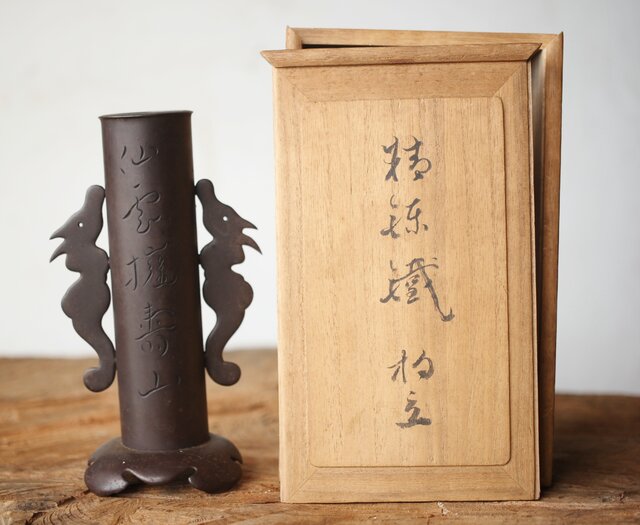 仙雲擁壽山
精錬鐵杓立